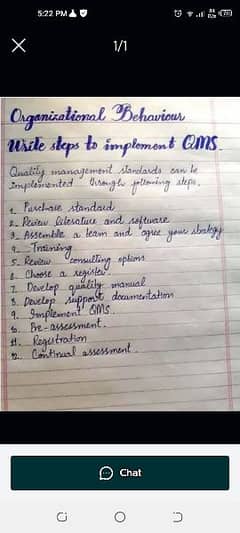 5:22 PM
1/1
Organizational Behaviour
Write steps to implement QMS.
Quality management standards can be
implemented through following steps.
1. Purchase standard
2. Review literature and software
3. Assemble a team and agree your strategy
4. Training
5. Review consulting options
6. Choose a register
7. Develop quality manual
8. Develop support documentation
9. Implement QMS.
10. Pre-assessment.
11. Registration
12. Continual assessment.
Chat